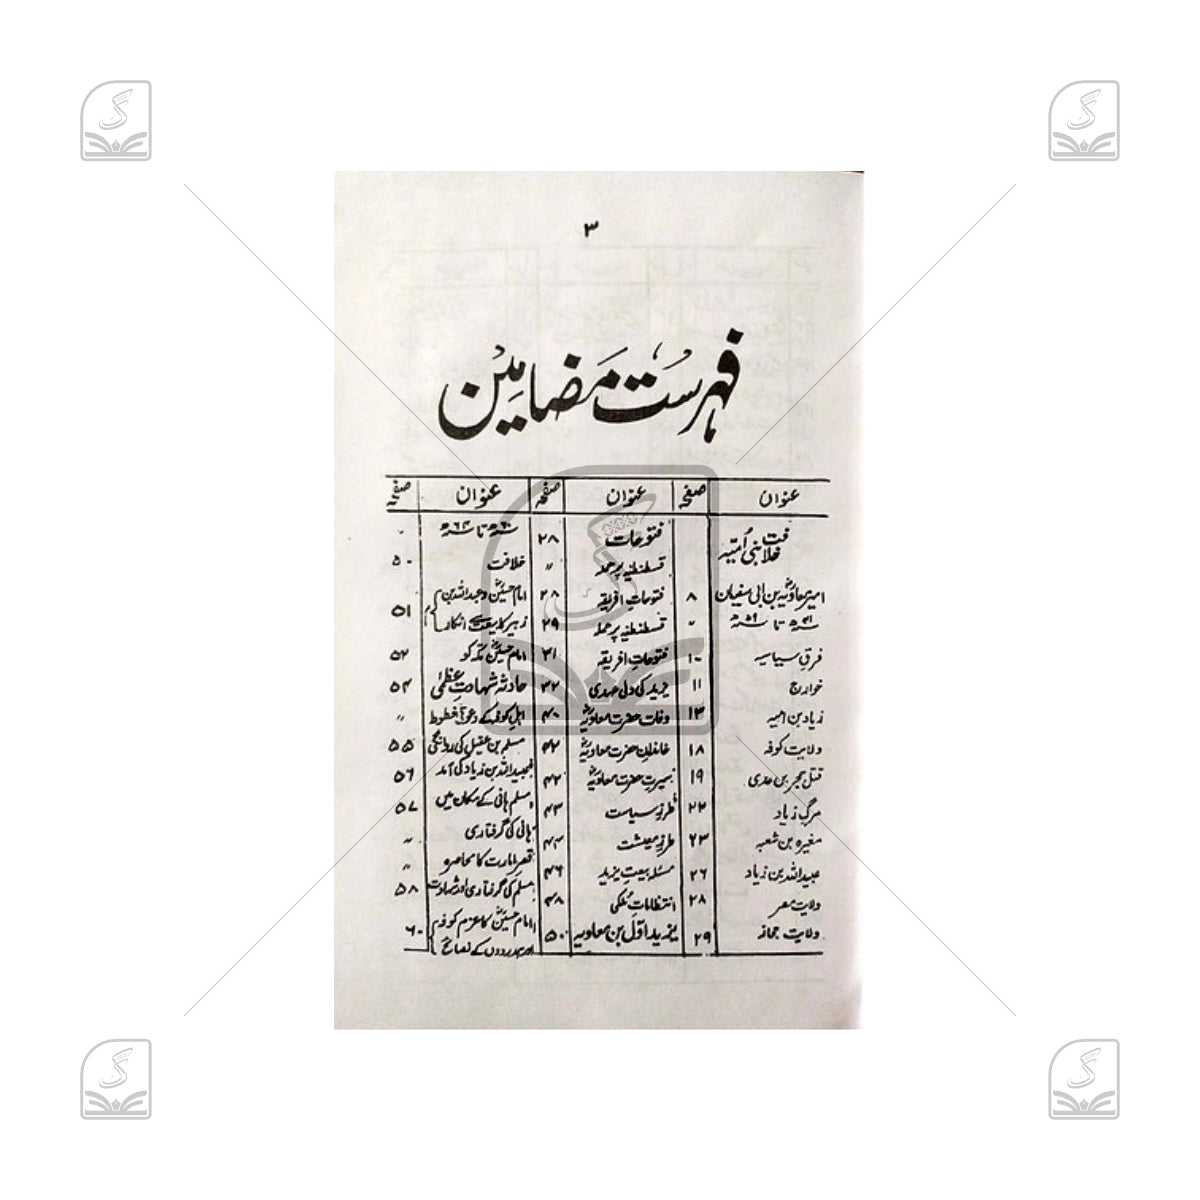 ۳
فہرست مضامین
عنوان صفحہ عنوان صفحہ عنوان صفحہ
خلافت بنی امیہ
امیر معاویہؓ بن ابی سفیان ۸
۴۱ھ تا ۵۹ھ "
فرق سیاسیہ ۱۰
خوارج ۱۱
زیاد بن امیہ ۱۳
ولایت کوفہ ۱۸
قتل حجر بن عدی ۱۹
مرگ زیاد ۲۲
مغیرہ بن شعبہ ۲۳
عبیداللہ بن زیاد ۲۶
ولایت مصر ۲۸
ولایت حجاز ۲۹
فتوحات ۲۸
قسطنطنیہ پر حملہ "
فتوحات افریقہ ۲۸
قسطنطنیہ پر حملہ ۲۹
فتوحات افریقہ ۳۱
یزید کی ولی عہدی ۳۲
وفات حضرت معاویہؓ ۴۰
خاندان حضرت معاویہؓ ۴۲
سیرت حضرت معاویہؓ ۴۲
طرز سیاست ۴۳
طرز معیشت ۴۴
مسئلہ بیعت یزید ۴۶
انتظامات ملکی ۴۸
یزید اول بن معاویہ ۵۰
۶۰ھ تا ۶۴ھ "
خلافت ۵۰
امام حسینؓ و عبداللہ بن
زبیر کا بیعت سے انکار ۵۱
امام حسینؓ مکہ کو ۵۲
حادثہ شہادت عظمیٰ ۵۴
اہل کوفہ کے دعوتی خطوط "
مسلم بن عقیل کی روانگی ۵۵
عبیداللہ بن زیاد کی آمد ۵۶
مسلم ہانی کے مکان میں ۵۷
ہانی کی گرفتاری "
قصر امارت کا محاصرہ "
مسلم کی گرفتاری اور شہادت ۵۸
امام حسینؓ کا عزم کوفہ
اور ہمدردوں کے نصائح ۶۰